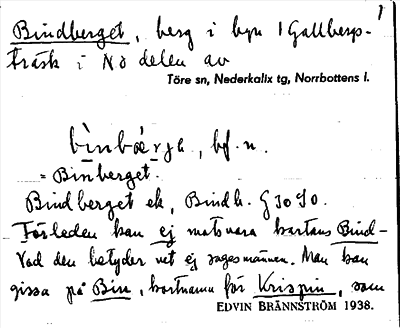 1
Bindberget, berg i byn Gallbergs-
träsk i NO delen av
Töre sn, Nederkalix tg, Norrbottens l.
bìnbærje, bf. n.
= Binberget.
Bindberget ek, Bindb. GSO SO.
Förleden kan ej motsvara kartans Bind-
Vad den betyder vet ej sagesmannen. Man kan
gissa på Bin, kortnamn för Krispin, som
EDVIN BRÄNNSTRÖM 1938.